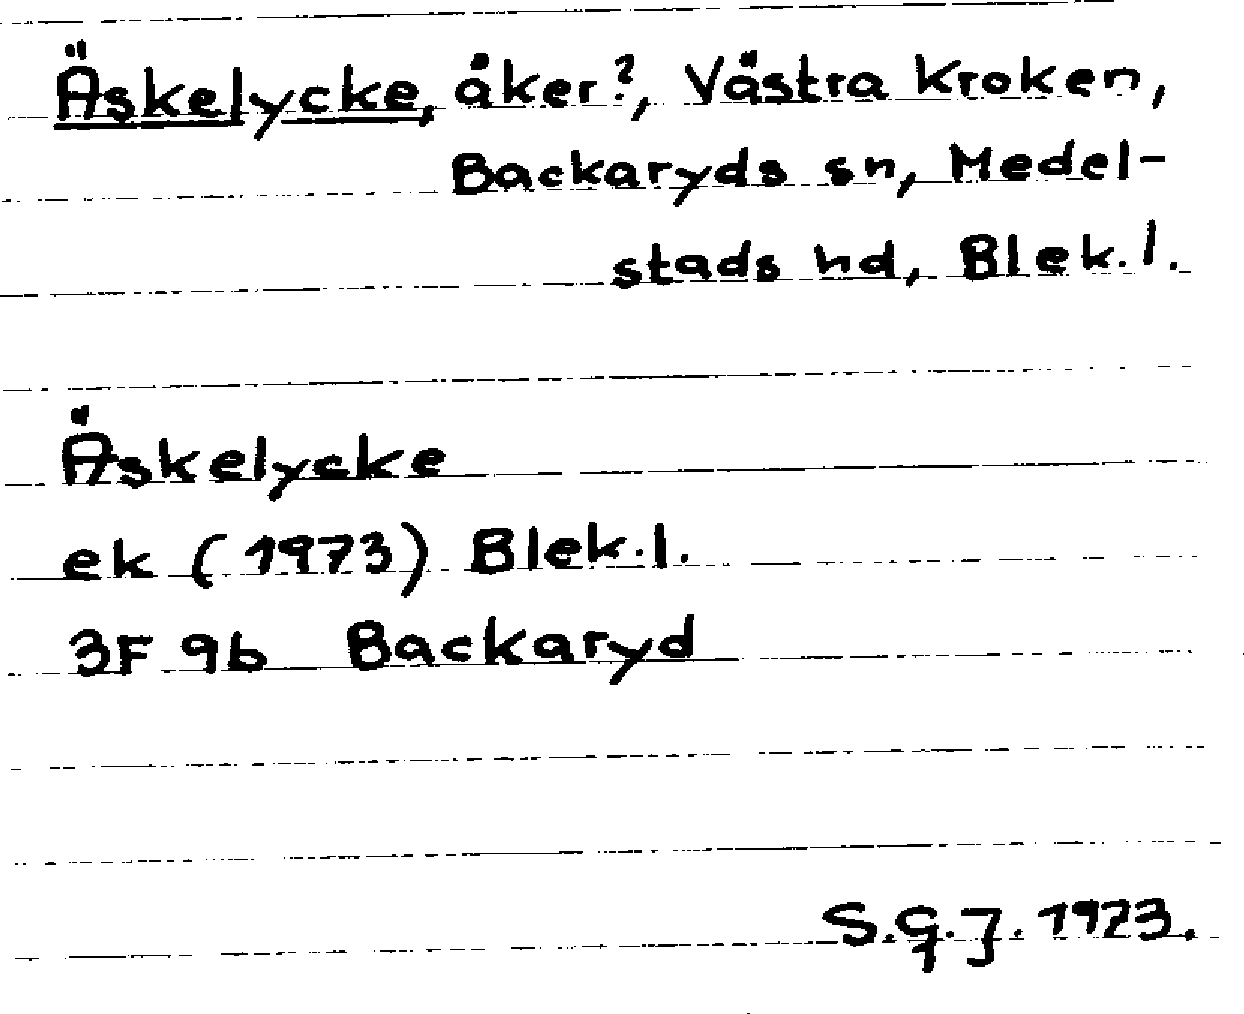 Äskelycke, åker?, Västra Kroken,
Backaryds sn, Medel-
stads hd, Blek. l.
Äskelycke
ek (1973) Blek. l.
3F 9b Backaryd
S.G.J. 1973.